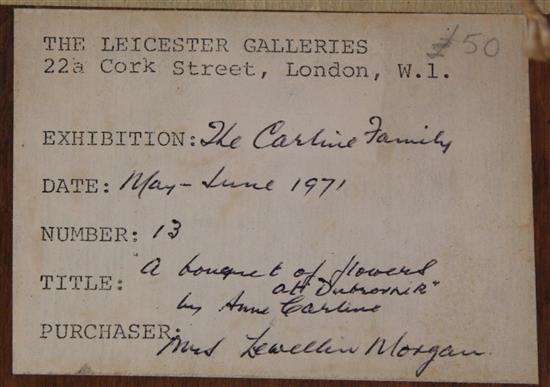 THE LEICESTER GALLERIES
£50
22a Cork Street, London, W.1.
EXHIBITION: The Carline Family
DATE: May - June 1971
NUMBER: 13
TITLE: A bouquet of flowers
at "Dubrovnik"
by Anne Carline
PURCHASER: Mrs Lewellin Morgan